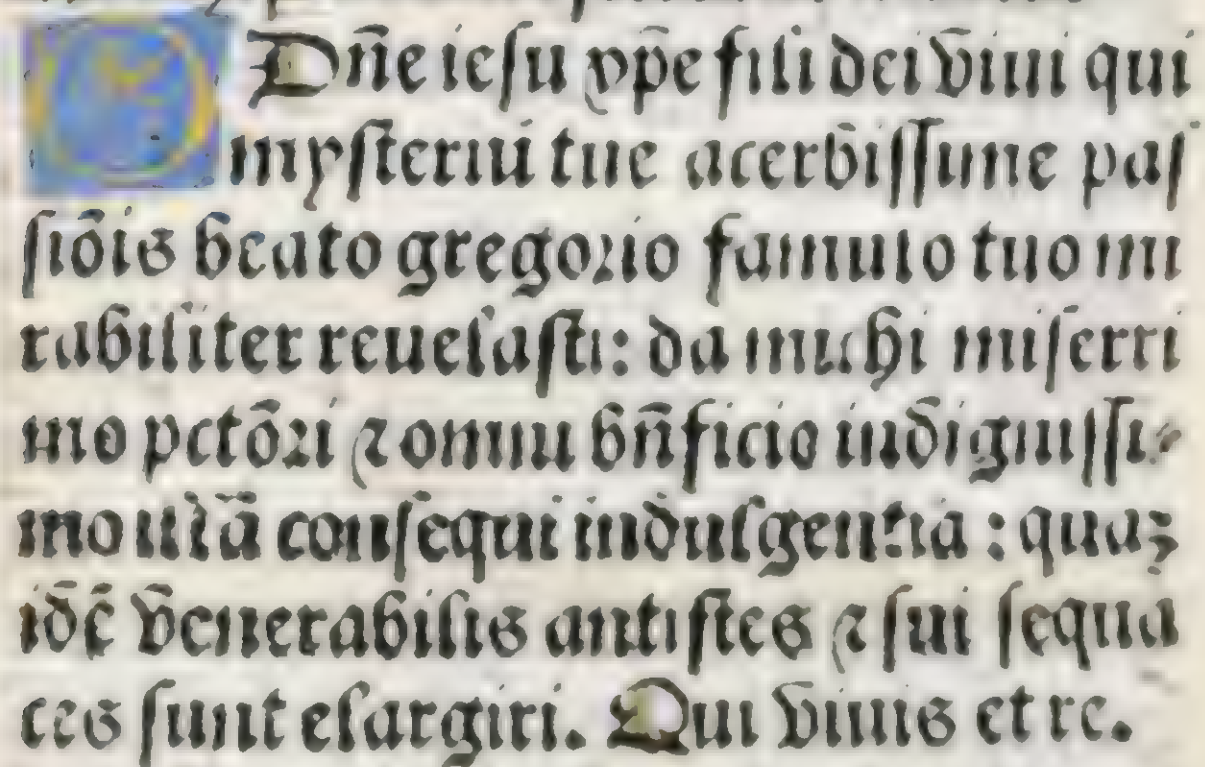 O Dñe iesu xp̄e fili dei viui qui
mysteriū tue acerbissime pas
siōis beato gregorio famulo tuo mi
rabiliter reuelasti: da michi miserri
mo pctōri ⁊ omni bñficio indignissi-
mo illā consequi indulgentiā: quaꝫ
idē venerabilis antistes ⁊ sui sequa
ces sunt elargiri. Qui viuis et rc.